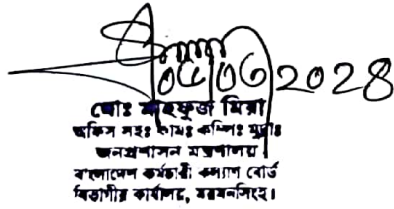 ০৫/০৬/২০২৪
মোঃ মাহফুজ মিয়া
অফিস সহঃ কামঃ কম্পিঃ মুদ্রাঃ
জনপ্রশাসন মন্ত্রণালয়
বাংলাদেশ কর্মচারী কল্যাণ বোর্ড
বিভাগীয় কার্যালয়, ময়মনসিংহ।